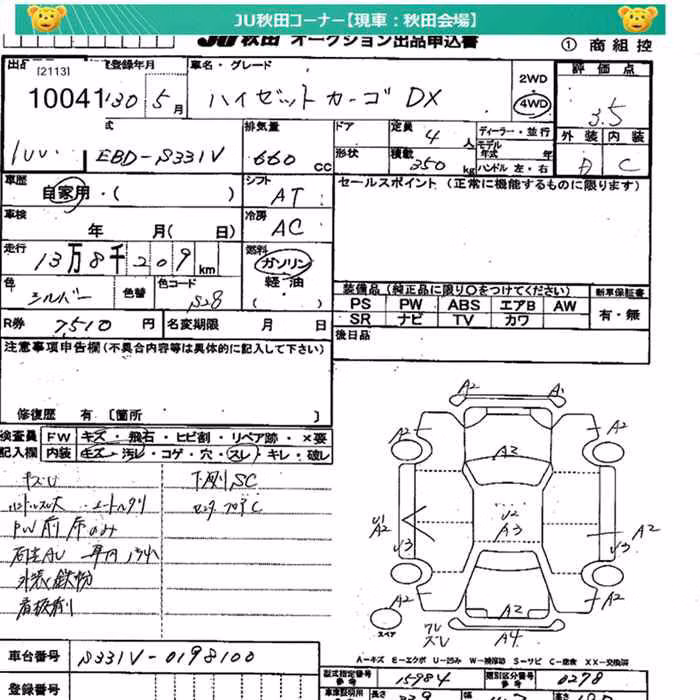 JU秋田コーナー【現車：秋田会場】
JU秋田 オークション出品申込書
① 商 組 控
[2113]
登録年月
車名・グレード
2WD
4WD
評 価 点
10041
30 5月
ハイゼットカーゴ DX
3.5
排気量
ドア
定員 4 人
ディーラー・並行
モデル年式 年
外装 内装
EBD-S331V
660 CC
形状
積載 350 kg
ハンドル 左・右
D C
車歴
自家用・( )
シフト
AT
セールスポイント (正常に機能するものに限ります)
車検
年 月( 日)
冷房
AC
走行
13万8千209 km
燃料
ガソリン
軽・油
( )
色
シルバー
色替
色コード
S28
装備品 (純正品に限り○をつけてください)
新車保証書
PS PW ABS エアB AW
SR ナビ TV カワ
有・無
R券 7510 円
名変期限 月 日
後日品
注意事項申告欄 (不具合内容等は具体的に記入して下さい)
修復歴 有 [箇所 ]
検査員記入欄
FW キズ・飛石・ヒビ割・リペア跡・×要
内装 キズ・汚レ・コゲ・穴・スレ・キレ・破レ
キズU
下廻SC
PW前席のみ
外装鉄粉
A2 A1
A2 A2
A2
U1 A2
U2 A3
A2
U3 U3
A2 A2
A2
A4
スペア
A-キズ E-エクボ U-凹み W-補修跡 S-サビ C-腐食 XX-交換済
車台番号 S331V-0198100
型式指定番号 15984
類別区分番号 0278
登録番号
長さ
幅
高さ